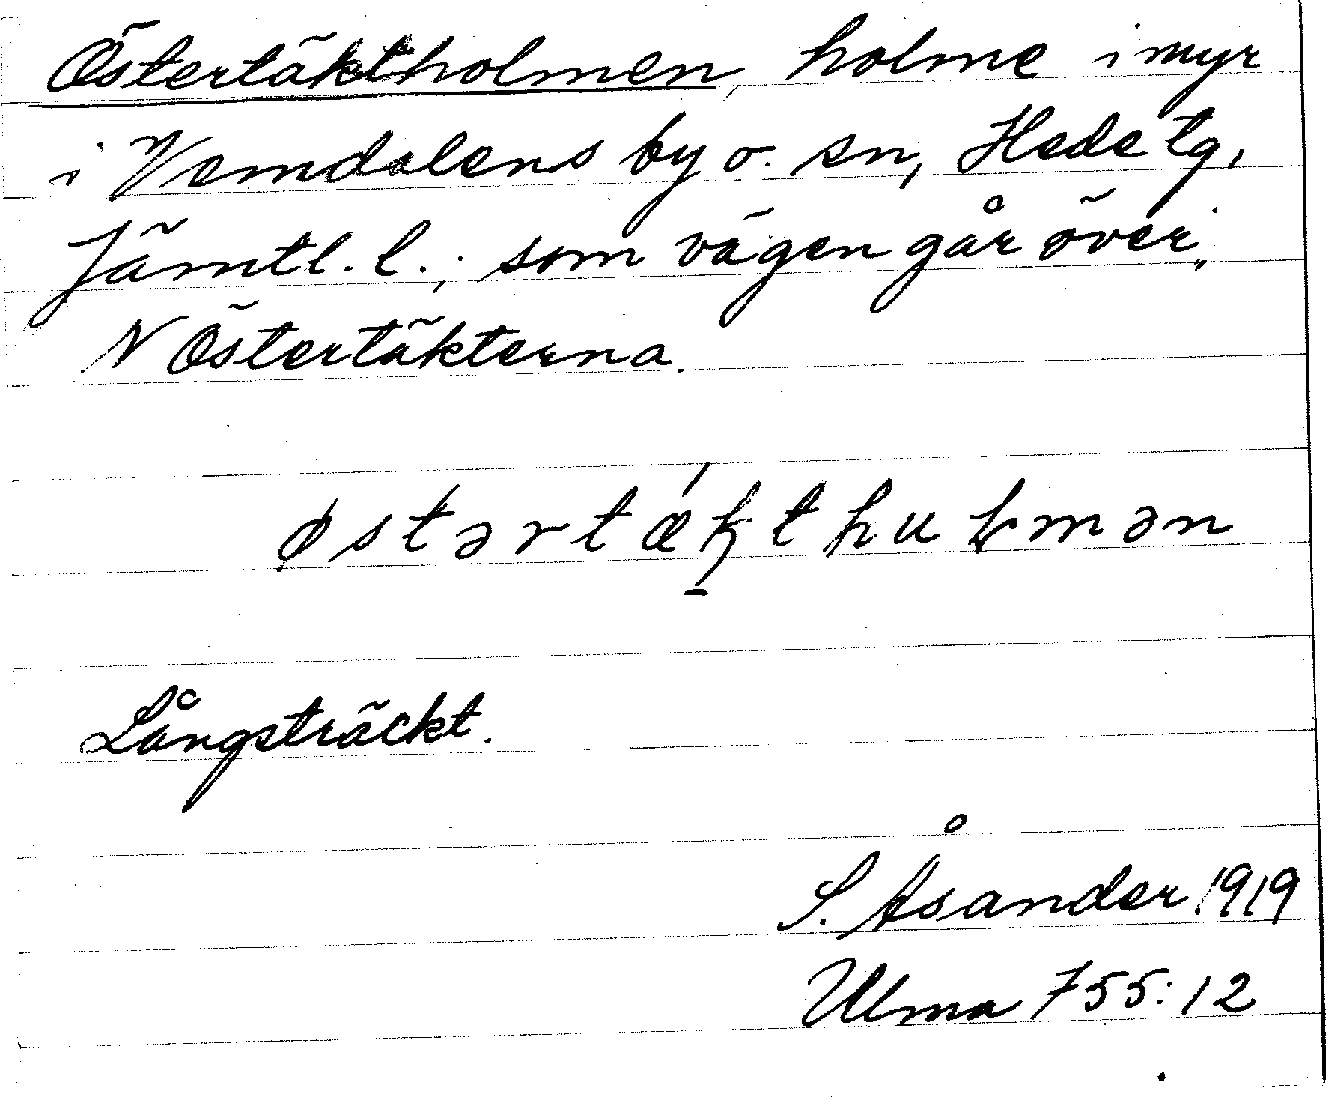 Östertäktholmen, holme i myr
i Vemdalens by o. sn, Hede tg,
Jämtl. l.; som vägen går över,
N Östertäkterna.
østərtǽkthuɽmən
Långsträckt.
S. Åsander 1919
Ulma 755:12